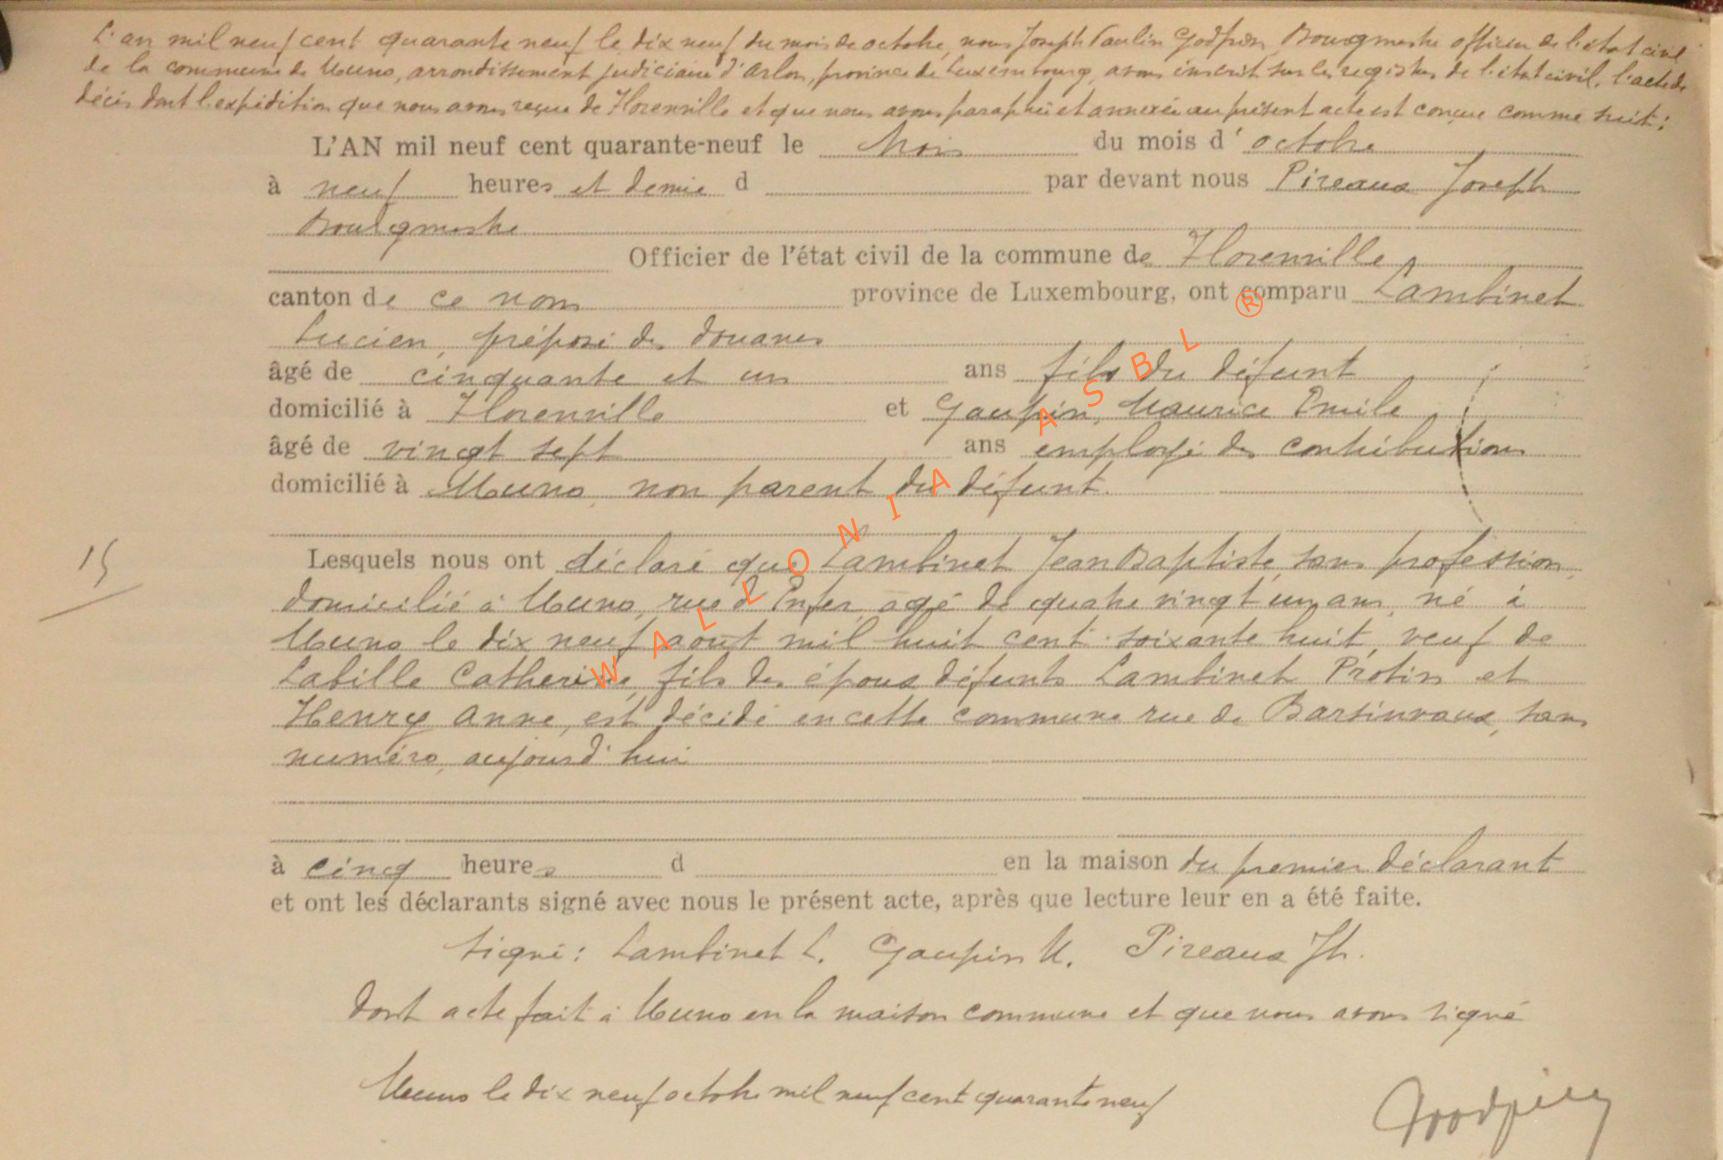 L'an mil neuf cent quarante neuf le dix neuf du mois de octobre, nous Joseph Paulin Godfrin Bourgmestre officier de l'état civil
de la commune de Muno, arrondissement judiciaire d'Arlon, province de Luxembourg, avons inscrit sur les registres de l'état civil, l'acte de
décès dont l'expédition que nous avons reçue de Florenville et que nous avons paraphée et annexée au présent acte est conçue comme suit:
L'AN mil neuf cent quarante-neuf le trois du mois d'octobre
à neuf heures et demie d par devant nous Pireaux Joseph
Bourgmestre
Officier de l'état civil de la commune de Florenville,
canton de ce nom province de Luxembourg, ont comparu Lambinet
Lucien, préposé des douanes
âgé de cinquante et un ans fils du défunt
domicilié à Florenville et Gaupin, Maurice Emile
âgé de vingt sept ans employé des contributions
domicilié à Muno, non parent du défunt.
15
Lesquels nous ont déclaré que Lambinet Jean Baptiste, sans profession,
domicilié à Muno, rue d'Enfer, agé de quatre vingt un ans, né à
Muno le dix neuf aout mil huit cent soixante huit, veuf de
Labille Catherine, fils des époux défunts Lambinet Protin et
Henry Anne, est décédé en cette commune rue de Barsinvaux, sans
numéro, aujourd'hui
à cinq heures d en la maison du premier déclarant
et ont les déclarants signé avec nous le présent acte, après que lecture leur en a été faite.
Signé: Lambinet L. Gaupin M. Pireaux Jh.
Dont acte fait à Muno en la maison commune et que nous avons signé
Muno le dix neuf octobre mil neuf cent quarante neuf
WALLONIA ASBL ®